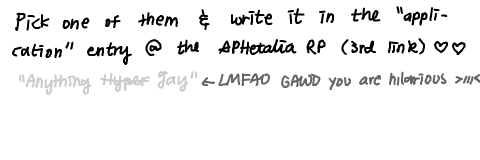 Pick one of them & write it in the "appli-
cation" entry @ the APHetalia RP (3rd link) ♡♡
"Anything Hyper Gay" ← LMFAO GAWD you are hilarious >///<